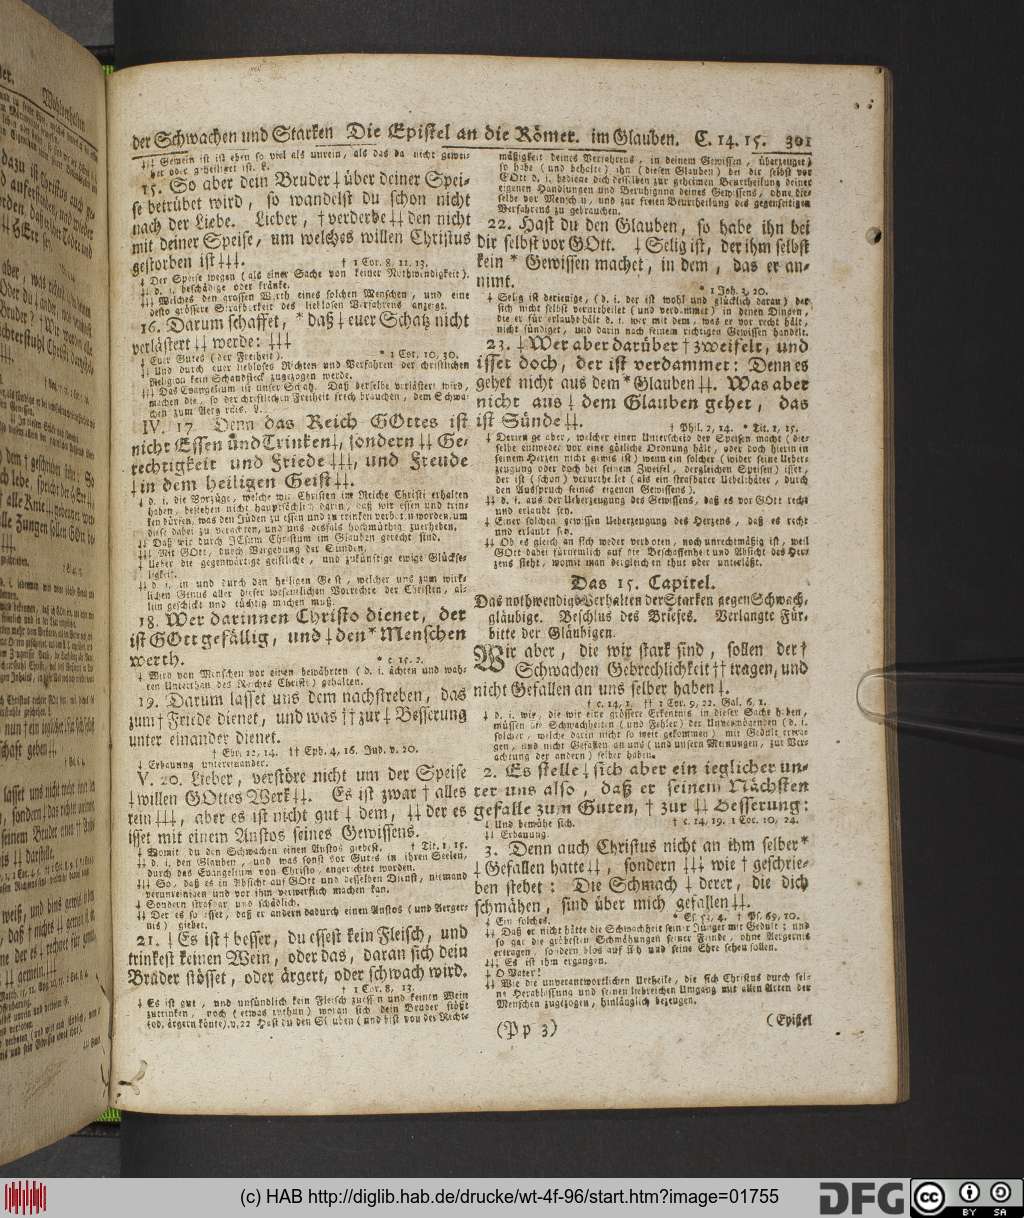 der Schwachen und Starken Die Epistel an die Römer. im Glauben. C. 14. 15. 301
‡‡‡ Gemein ist ist eben so viel als unrein, als das da nicht gewei-
15. So aber dein Bruder ‡ über deiner Spei-
se betrübet wird, so wandelst du schon nicht
nach der Liebe. Lieber, † verderbe ‡‡ den nicht
mit deiner Speise, um welches willen Christus
gestorben ist ‡‡‡. † 1 Cor. 8, 11. 13.
‡ Der Speise wegen (als einer Sache von keiner Nothwendigkeit).
‡‡ d. i. beschädige oder kränke.
‡‡‡ Welches den grossen Werth eines solchen Menschen, und eine
desto grössere Strafbarkeit des lieblosen Verfahrens anzeigt.
16. Darum schaffet, * daß ‡ euer Schatz nicht
verlästert ‡‡ werde: ‡‡‡
‡ Euer Gutes (der Freiheit). * 1 Cor. 10, 30.
‡‡ Und durch euer liebloses Richten und Verfahren der christlichen
Religion kein Schandfleck zugezogen werde.
‡‡‡ Das Evangelium ist unser Schatz. Daß derselbe verlästert wird,
machen die, so der christlichen Freiheit frech brauchen, dem Schwa-
IV. 17. Denn das Reich GOttes ist
nicht Essen und Trinken ‡, sondern ‡‡ Ge-
rechtigkeit und Friede ‡‡‡, und Freude
‡ in dem heiligen Geist ‡‡.
‡ d. i. die Vorzüge, welche wir Christen im Reiche Christi erhalten
haben, bestehen nicht hauptsächlich darin, daß wir essen und trin-
ken dürfen, was den Jüden zu essen und zu trinken verboten worden, um
diese dabei zu verachten, und uns desfals hochmüthig zuerheben.
‡‡ Daß wir durch JEsum Christum im Glauben gerecht sind.
‡‡‡ Mit GOtt, durch Vergebung der Sünden.
‡ Ueber die gegenwärtige geistliche, und zukünftige ewige Glückse-
ligkeit.
‡‡ d. i. in und durch den heiligen Geist, welcher uns zum wirk-
lichen Genus aller dieser wesentlichen Vorrechte der Christen, al-
lein geschickt und tüchtig machen muß.
18. Wer darinnen Christo dienet, der
ist GOtt gefällig, und ‡ den * Menschen
werth. * c. 15, 2.
‡ Wird von Menschen vor einen bewährten (d. i. ächten und wah-
ren Unterthan des Reiches Christi) gehalten.
19. Darum lasset uns dem nachstreben, das
zum † Friede dienet, und was †† zur ‡ Besserung
unter einander dienet.
† Ebr. 12, 14. †† Eph. 4, 16. Jud. v. 20.
‡ Erbauung untereinander.
V. 20. Lieber, verstöre nicht um der Speise
‡ willen GOttes Werk ‡‡. Es ist zwar † alles
rein ‡‡‡, aber es ist nicht gut ‡ dem, ‡‡ der es
isset mit einem Anstos seines Gewissens.
‡ Womit du den Schwachen einen Anstos giebest. † Tit. 1, 15.
‡‡ d. i. den Glauben, und was sonst vor Gutes in ihren Seelen,
durch das Evangelium von Christo, angerichtet worden.
‡‡‡ So, daß es in Absicht auf GOtt und desselben Dienst, niemand
verunreinigen und vor ihm verwerflich machen kan.
‡ Sondern strafbar und schädlich.
‡‡ Der es so isset, daß er andern dadurch einen Anstos (und Aerger-
nis) giebet.
21. ‡ Es ist † besser, du essest kein Fleisch, und
trinkest keinen Wein, oder das, daran sich dein
Bruder stösset, oder ärgert, oder schwach wird.
† 1 Cor. 8, 13.
‡ Es ist gut, und unsündlich kein Fleisch zuessen und keinen Wein
zutrinken, noch (etwas zuthun) woran sich dein Bruder stößt
(od. ärgern könte). v. 22 Hast du den Glauben (und bist von der Recht-
mäßigkeit deines Verfahrens, in deinem Gewissen, überzeuget)
so habe (und behalte) ihn (diesen Glauben) bei dir selbst vor
GOtt d. i. bediene dich desselben zur geheimen Beurtheilung deiner
eigenen Handlungen und Beruhigung deines Gewissens, ohne die-
selbe vor Menschen, und zur freien Beurtheilung des gegenseitigen
Verfahrens zu gebrauchen.
22. Hast du den Glauben, so habe ihn bei
dir selbst vor GOtt. ‡ Selig ist, der ihm selbst
kein * Gewissen machet, in dem, das er an-
nimt. * 1 Joh. 3, 20.
‡ Selig ist derienige, (d. i. der ist wohl und glücklich daran) der
sich nicht selbst verurtheilet (und verdammet) in denen Dingen,
die er für erlaubt hält d. i. wer mit dem, was er vor recht hält,
nicht sündiget, und darin nach seinem richtigen Gewissen handelt.
23. ‡ Wer aber darüber † zweifelt, und
isset doch, der ist verdammet: Denn es
gehet nicht aus dem * Glauben ‡‡. Was aber
nicht aus ‡ dem Glauben gehet, das
ist Sünde ‡‡. † Phil. 2, 14. * Tit. 1, 15.
‡ Derienige aber, welcher einen Unterscheid der Speisen macht (die-
selbe entweder vor eine götliche Ordnung hält, oder doch hierin in
seinem Herzen nicht gewis ist) wenn ein solcher (wider seine Ueber-
zeugung oder doch bei seinem Zweifel, dergleichen Speisen) isset,
der ist (schon) verurtheilet (als ein strafbarer Uebelthäter, durch
den Ausspruch seines eigenen Gewissens).
‡‡ d. i. aus der Ueberzeugung des Gewissens, daß es vor GOtt recht
und erlaubt sey.
‡ Einer solchen gewissen Ueberzeugung des Herzens, daß es recht
und erlaubt sey.
‡‡ Ob es gleich an sich weder verboten, noch unrechtmäßig ist, weil
GOtt dabei fürnemlich auf die Beschaffenheit und Absicht des Her-
zens siehet, womit man dergleichen thut oder unterläßt.
Das 15. Capitel.
Das nothwendige Verhalten der Starken gegen Schwach-
gläubige. Beschlus des Briefes. Verlangte Für-
bitte der Gläubigen.
Wir aber, die wir stark sind, sollen der †
Schwachen Gebrechlichkeit †† tragen, und
nicht Gefallen an uns selber haben ‡.
† c. 14, 1. †† 1 Cor. 9, 22. Gal. 6, 1.
‡ d. i. wir, die wir eine grössere Erkentnis in dieser Sache haben,
müssen die Schwachheiten (und Fehler) der Unvermögenden (d. i.
solcher, welche darin nicht so weit gekommen) mit Gedult ertra-
gen, und nicht Gefallen an uns (und unsern Meinungen, zur Ver-
achtung der andern) selber haben.
2. Es stelle ‡ sich aber ein ieglicher un-
ter uns also, daß er seinem Nächsten
gefalle zum Guten, † zur ‡‡ Besserung:
‡ Und bemühe sich. † c. 14, 19. 1 Cor. 10, 24.
‡‡ Erbauung.
3. Denn auch Christus nicht an ihm selber *
‡ Gefallen hatte ‡‡, sondern ‡‡‡ wie † geschrie-
ben stehet: Die Schmach ‡ derer, die dich
schmähen, sind über mich gefallen ‡‡.
‡ Ein solches. * Es. 53, 4. † Ps. 69, 10.
‡‡ Daß er nicht hätte die Schwachheit seiner Jünger mit Gedult; und
so gar die gröbesten Schmähungen seiner Feinde, ohne Aergernis
ertragen, sondern blos auf sich und seine Ehre sehen sollen.
‡‡‡ Es ist ihm ergangen.
‡ O Vater!
‡‡ Wie die unverantwortlichen Urtheile, die sich Christus durch sei-
ne Herablassung und seinen liebreichen Umgang mit allen Arten der
Menschen zugezogen, hinlänglich bezeugen.
(Pp 3)
(Epistel
(c) HAB http://diglib.hab.de/drucke/wt-4f-96/start.htm?image=01755
DFG
cc BY SA